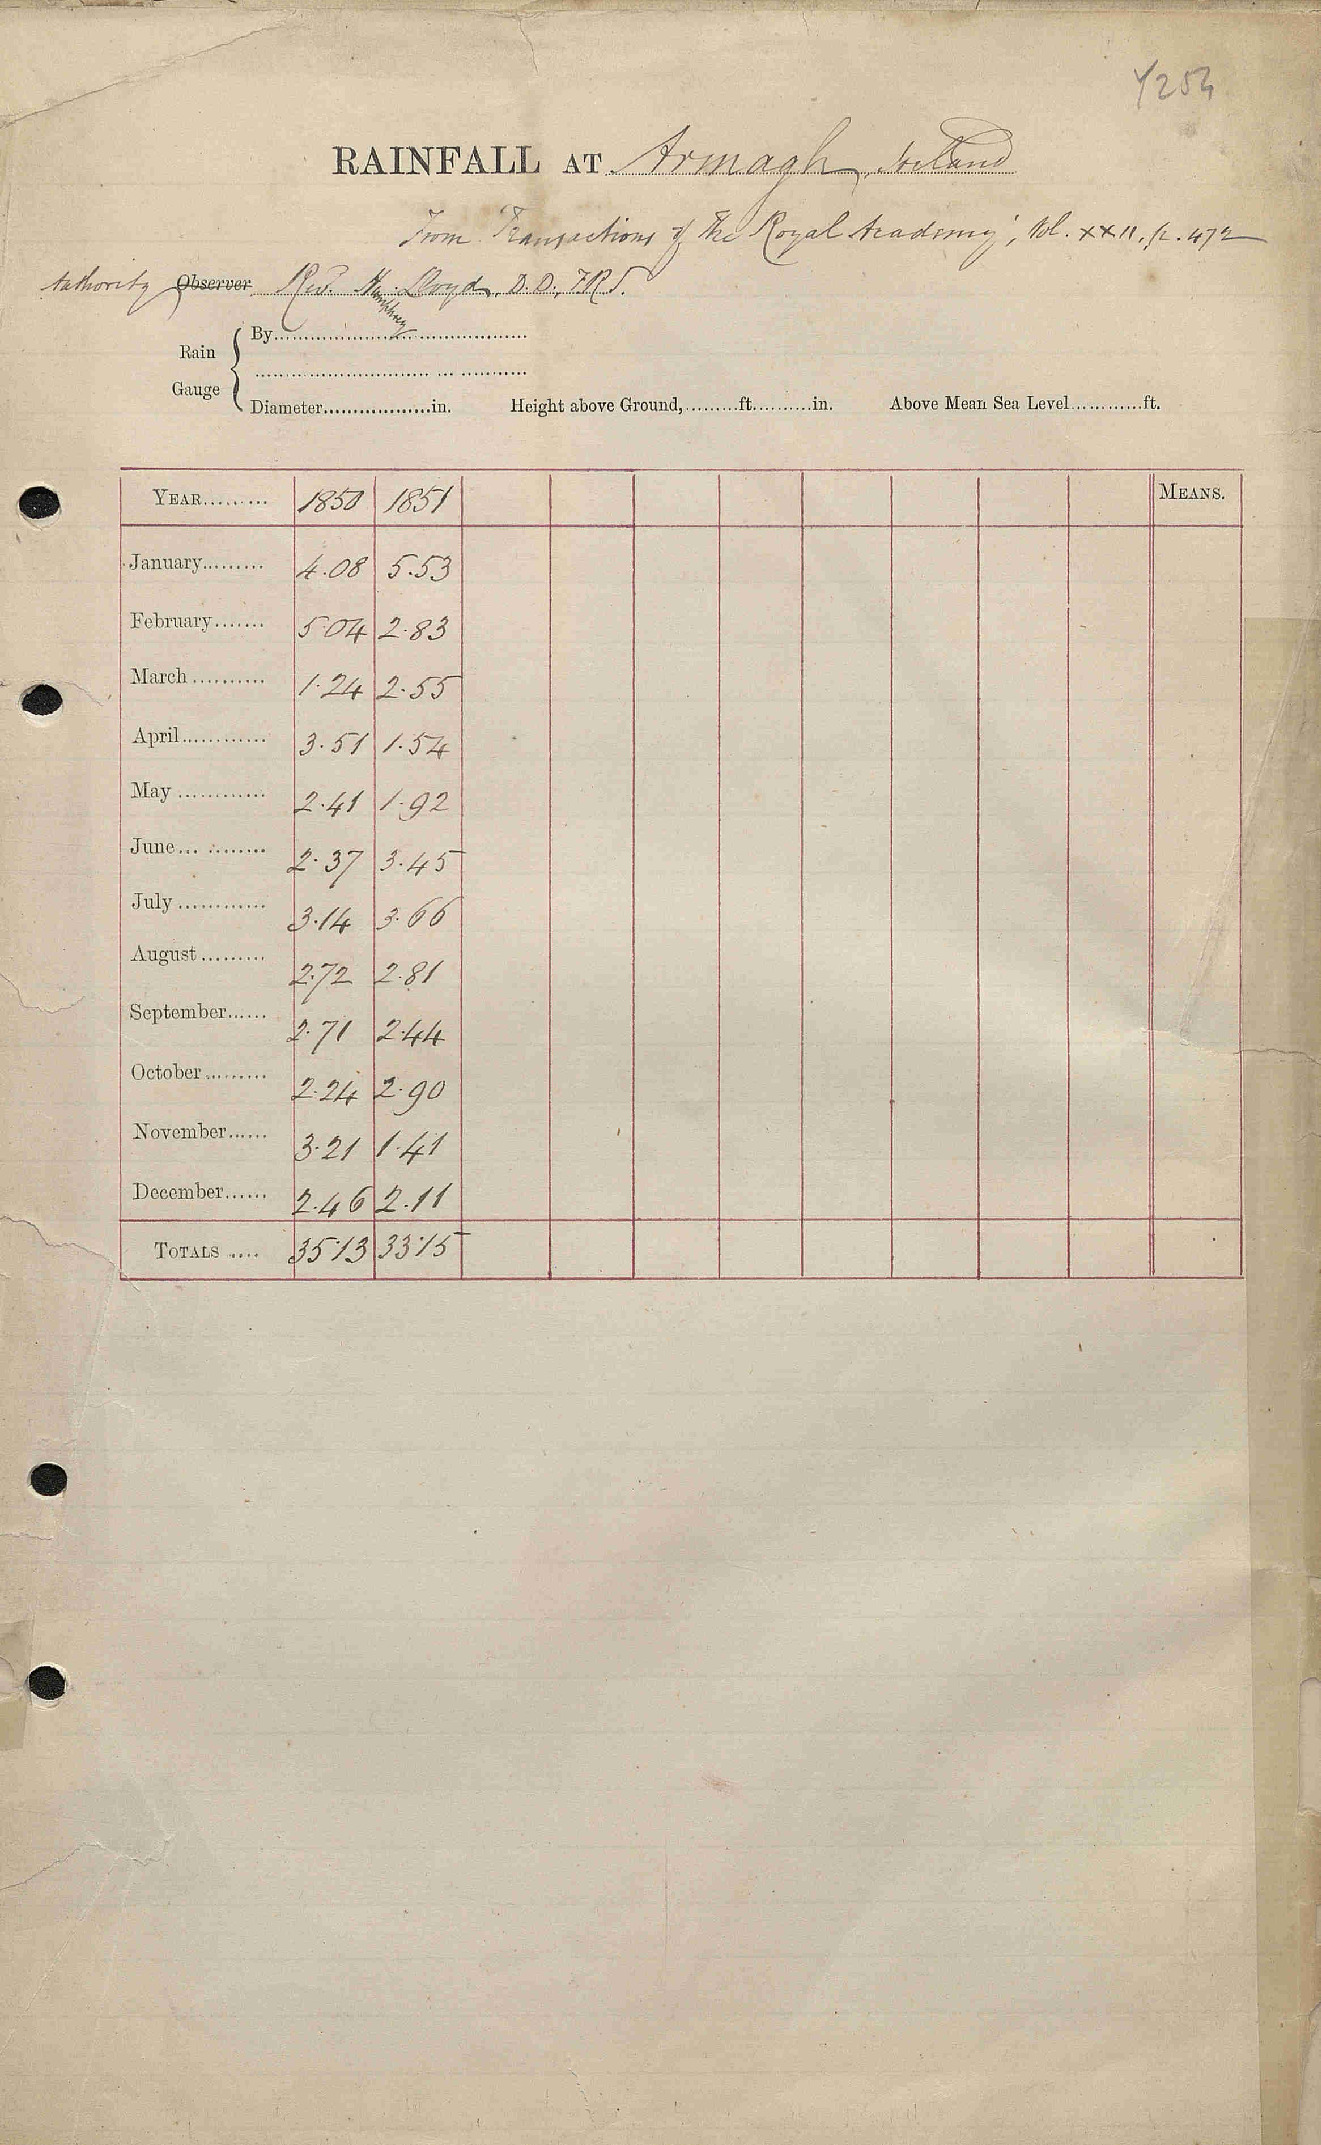 Y254
RAINFALL AT Armagh, Ireland
From 'Transactions of the Royal Academy', Vol. XXII, p. 472
Authority Observer Rev. H. Lloyd, D.D., F.R.S.
Humphrey
Rain Gauge { By..............................................
..............................................
Diameter...................in. Height above Ground,.........ft..........in. Above Mean Sea Level............ft.
YEAR......... 1850 1851 MEANS.
January......... 4.08 5.53
February....... 5.04 2.83
March.......... 1.24 2.55
April............ 3.51 1.54
May............ 2.41 1.92
June............ 2.37 3.45
July............ 3.14 3.66
August......... 2.72 2.81
September...... 2.71 2.44
October......... 2.24 2.90
November...... 3.21 1.41
December...... 2.46 2.11
TOTALS .... 35.13 33.15